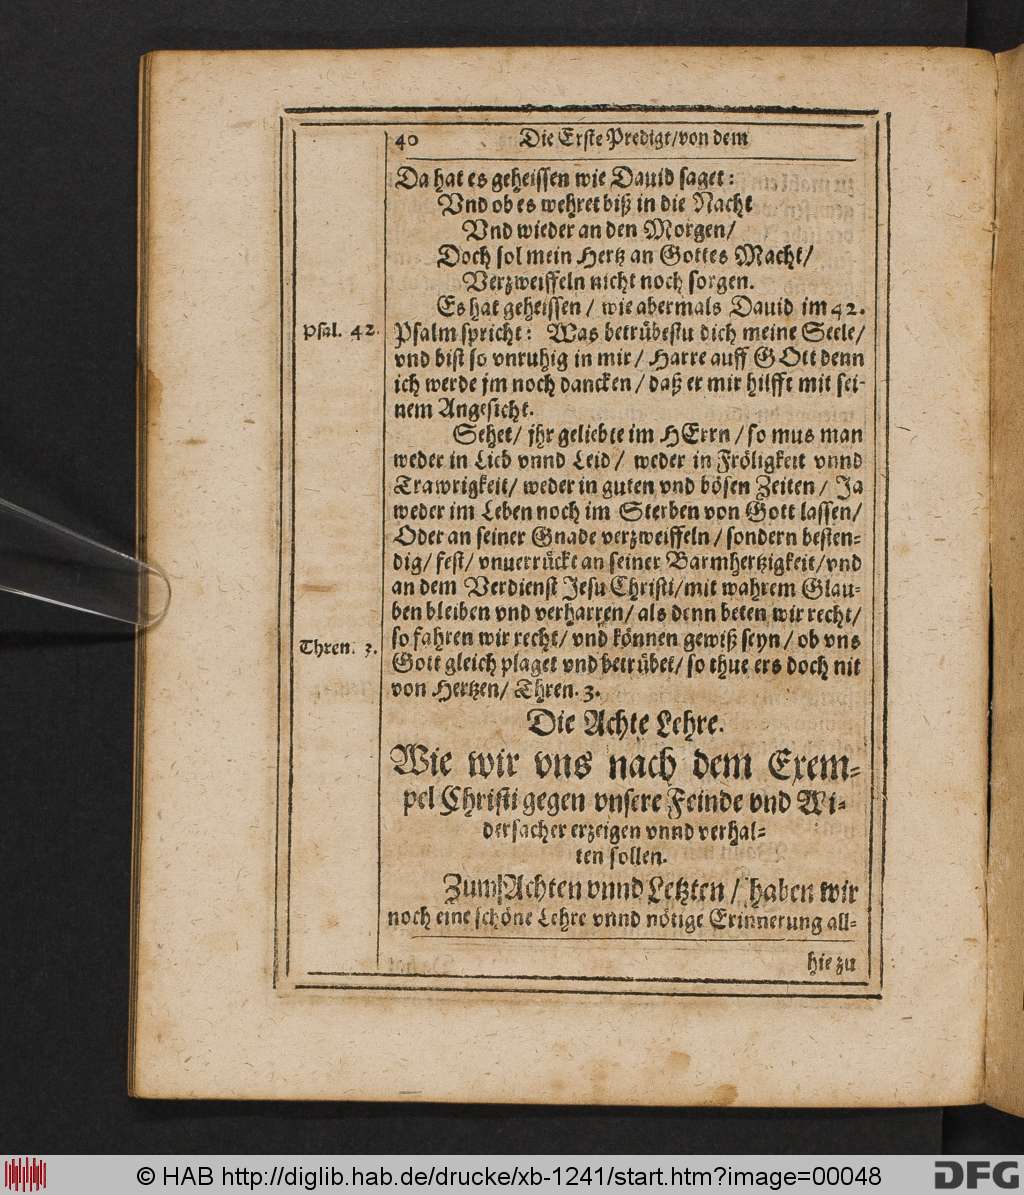 40 Die Erste Predigt/von dem
Da hat es geheissen wie Dauid saget:
Vnd ob es wehret biß in die Nacht
Vnd wieder an den Morgen/
Doch sol mein Hertz an Gottes Macht/
Verzweiffeln nicht noch sorgen.
Es hat geheissen/ wie abermals Dauid im 42.
Psal. 42.
Psalm spricht: Was betrübestu dich meine Seele/
vnd bist so vnruhig in mir/ Harre auff GOtt denn
ich werde jm noch dancken/ daß er mir hilfft mit sei-
nem Angesicht.
Sehet/ jhr geliebte im HErrn/ so mus man
weder in Lieb vnnd Leid/ weder in Fröligkeit vnnd
Trawrigkeit/ weder in guten vnd bösen Zeiten/ Ja
weder im Leben noch im Sterben von Gott lassen/
Oder an seiner Gnade verzweiffeln/ sondern besten-
dig/ fest/ vnuerrückt an seiner Barmhertzigkeit/vnd
an dem Verdienst Jesu Christi/mit wahrem Glau-
ben bleiben vnd verharren/ als denn beten wir recht/
so fahren wir recht/ vnd können gewiß seyn/ ob vns
Thren. 3.
Gott gleich plaget vnd betrübet/ so thue ers doch nit
von Hertzen/ Thren. 3.
Die Achte Lehre.
Wie wir vns nach dem Exem-
pel Christi gegen vnsere Feinde vnd Wi-
dersacher erzeigen vnnd verhal-
ten sollen.
Zum Achten vnnd Letzten/ haben wir
noch eine schöne Lehre vnnd nötige Erinnerung all-
hie zu
© HAB http://diglib.hab.de/drucke/xb-1241/start.htm?image=00048
DFG